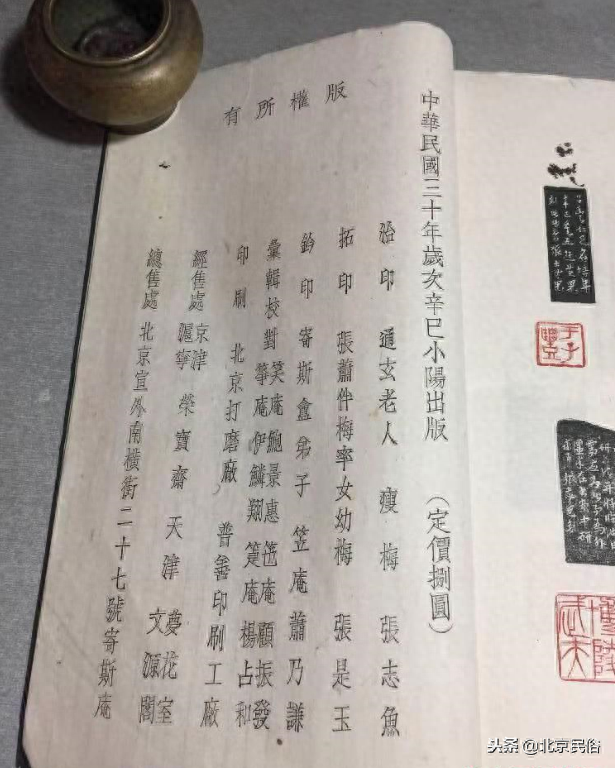 版權所有
中華民國三十年歲次辛巳小陽出版 (定價捌圓)
治印 通玄老人 瘦梅 張志魚
拓印 張蕭件梅率女幼梅 張是玉
鈐印 寄斯盦弟子 笠庵蕭乃謙
彙輯校對 笑庵鮑景惠 笆庵顧振發
箏庵伊鱗翔 篁庵楊占和
印刷 北京打磨廠 普善印刷工廠
經售處 京津滬寧 榮寶齋 天津 夢花室 文源閣
總售處 北京宣外南橫街二十七號寄斯庵
頭条 @北京民俗